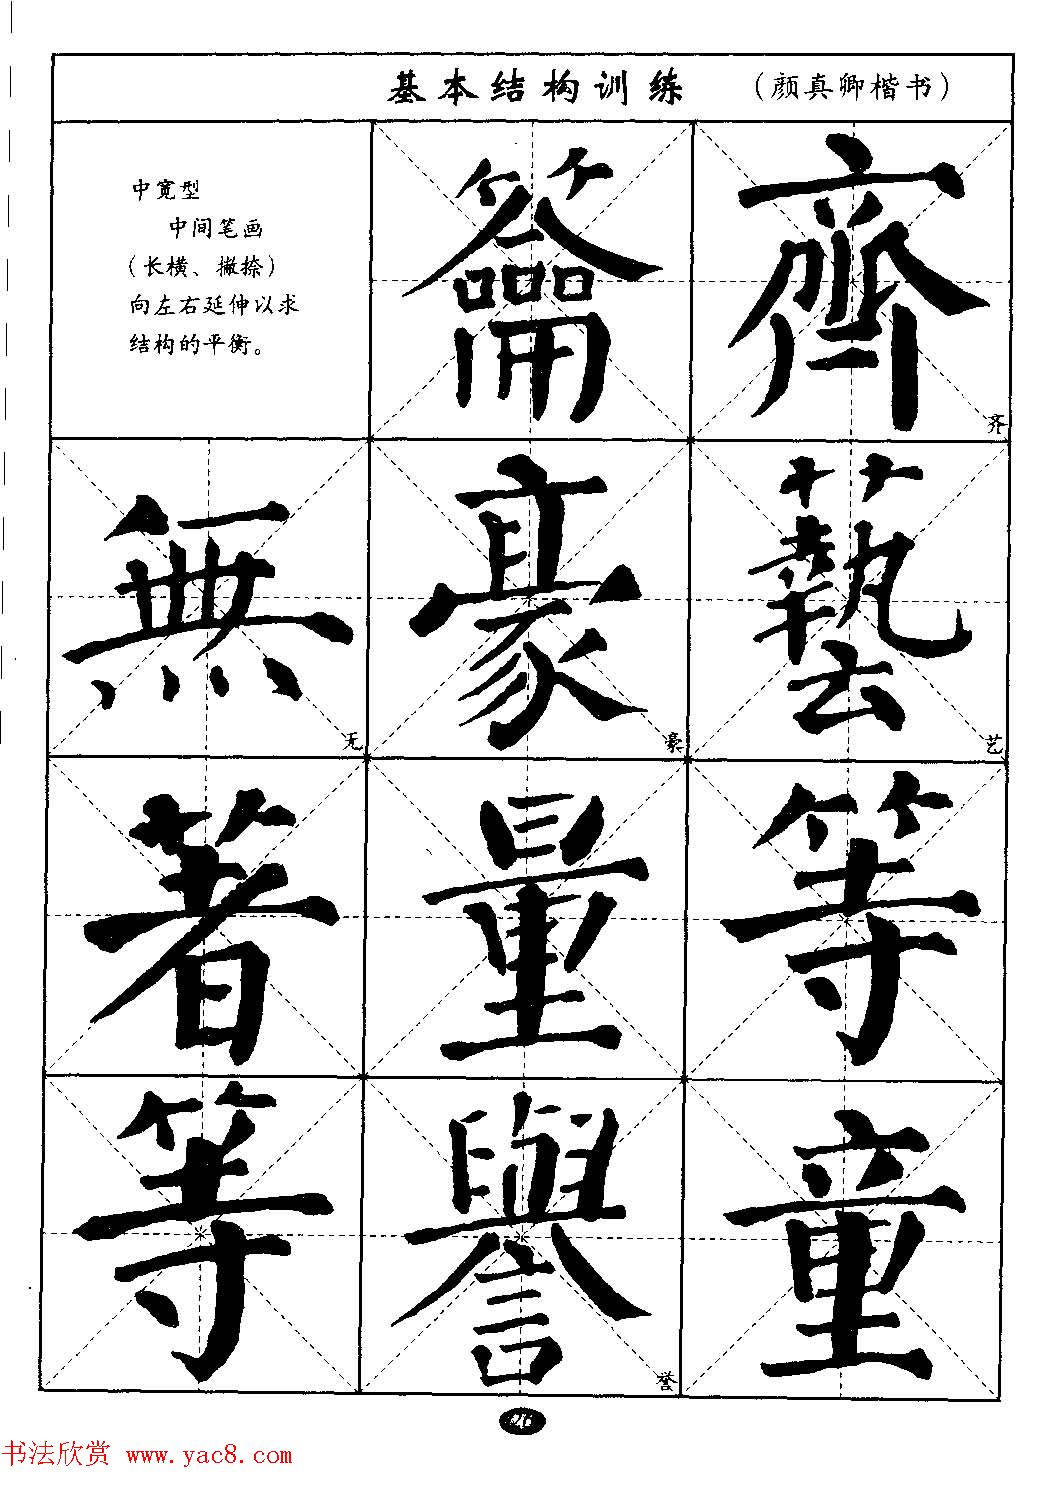 基本结构训练 （颜真卿楷书）
中宽型
中间笔画
（长横、撇捺）
向左右延伸以求
结构的平衡。
籥 齊 齐
無 无 豪 豪 藝 艺
著 量 等
等 譽 誉 童
26
书法欣赏 www.yac8.com